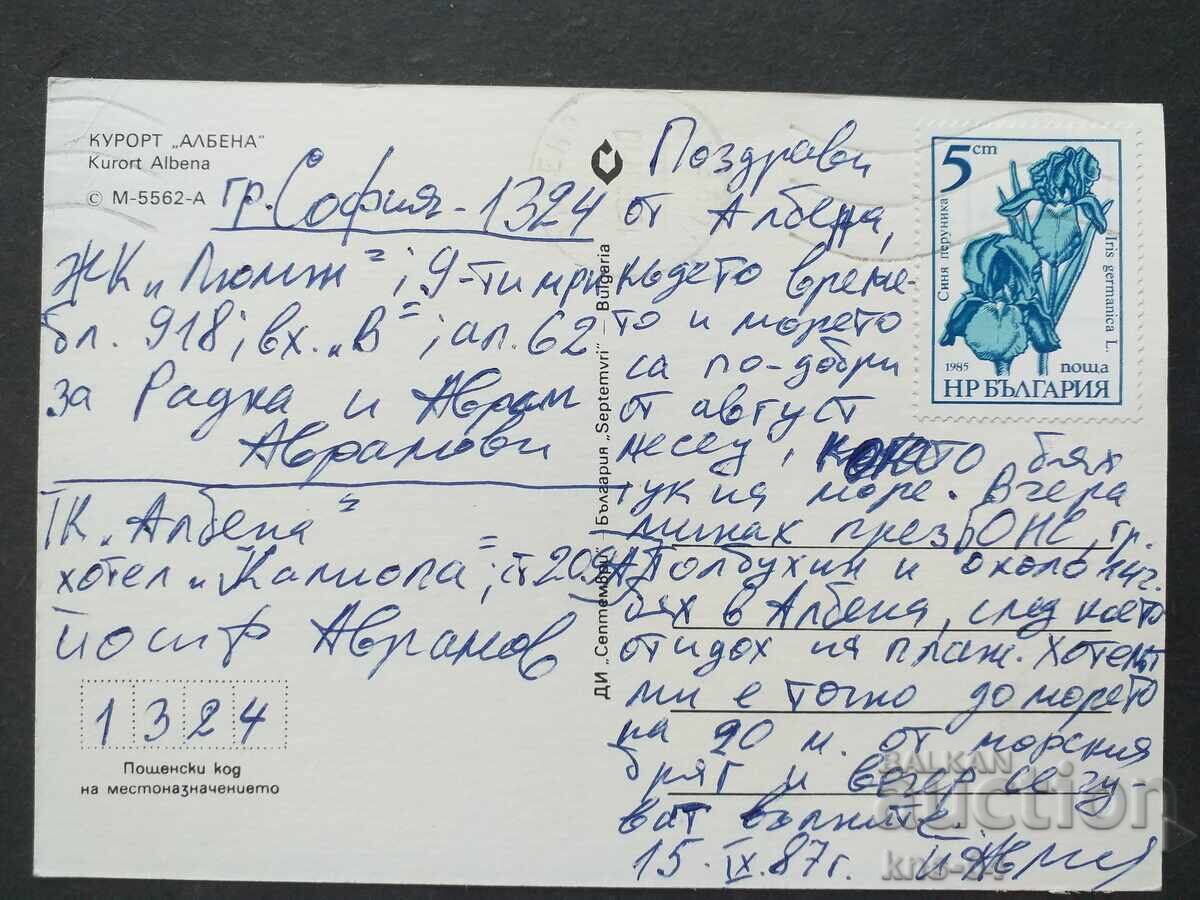 КУРОРТ „АЛБЕНА"
Kurort Albena
© М-5562-А
гр. София - 1324
ЖК „Люлин"; 9-ти м-р
бл. 918; вх. „В"; ап. 62
за Радка и Аврам
Аврамови
ТК „Албена"
хотел „Калиопа"; ст
Йосиф Аврамов
1 3 2 4
Пощенски код
на местоназначението
ДИ „Септември" — България „Septemvri" — Bulgaria
Поздрави
от Албена,
където време-
то и морето
са по-добри
от август
месец, когато бях
тук на море. Вчера
минах през БОНС, гр.
Толбухин и около ч
бях в Албена, след което
отидох на плаж. Хотелът
ми е точно до морето
на 20 м. от морския
бряг и вечер се чу-
ват вълните.
15. IX. 87 г. Й.
5 ст
Синя перуника
Iris germanica L.
1985
поща
НР БЪЛГАРИЯ
BALKAN
auction
kns-94